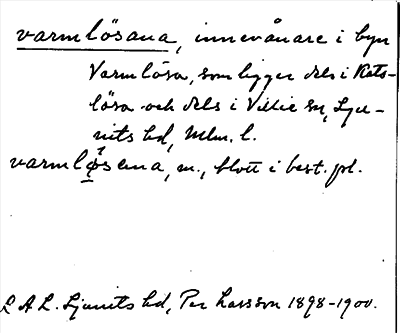 varmlösana, innevånare i byn
Varmlösa, som ligger dels i Kats-
lösa och dels i Villie sn, Lju-
nits hd, Mlm. l.
varmlǫ́sana, m., blott i best. pl.
L A L. Ljunits hd, Per Larsson 1898-1900.